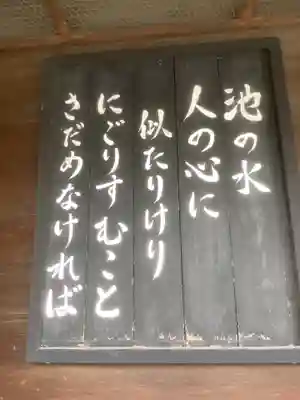 池の水
人の心に
似たりけり
にごりすむこと
さだめなければ